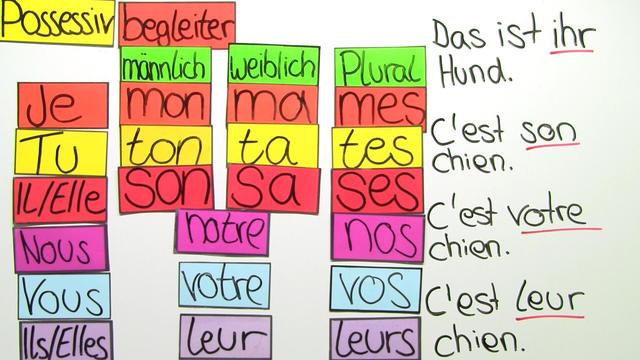 Possessiv begleiter
männlich weiblich Plural
Je mon ma mes
Tu ton ta tes
IL/Elle son sa ses
Nous notre nos
Vous votre vos
Ils/Elles leur leurs
Das ist ihr
Hund.
C'est son
chien.
C'est votre
chien.
C'est leur
chien.